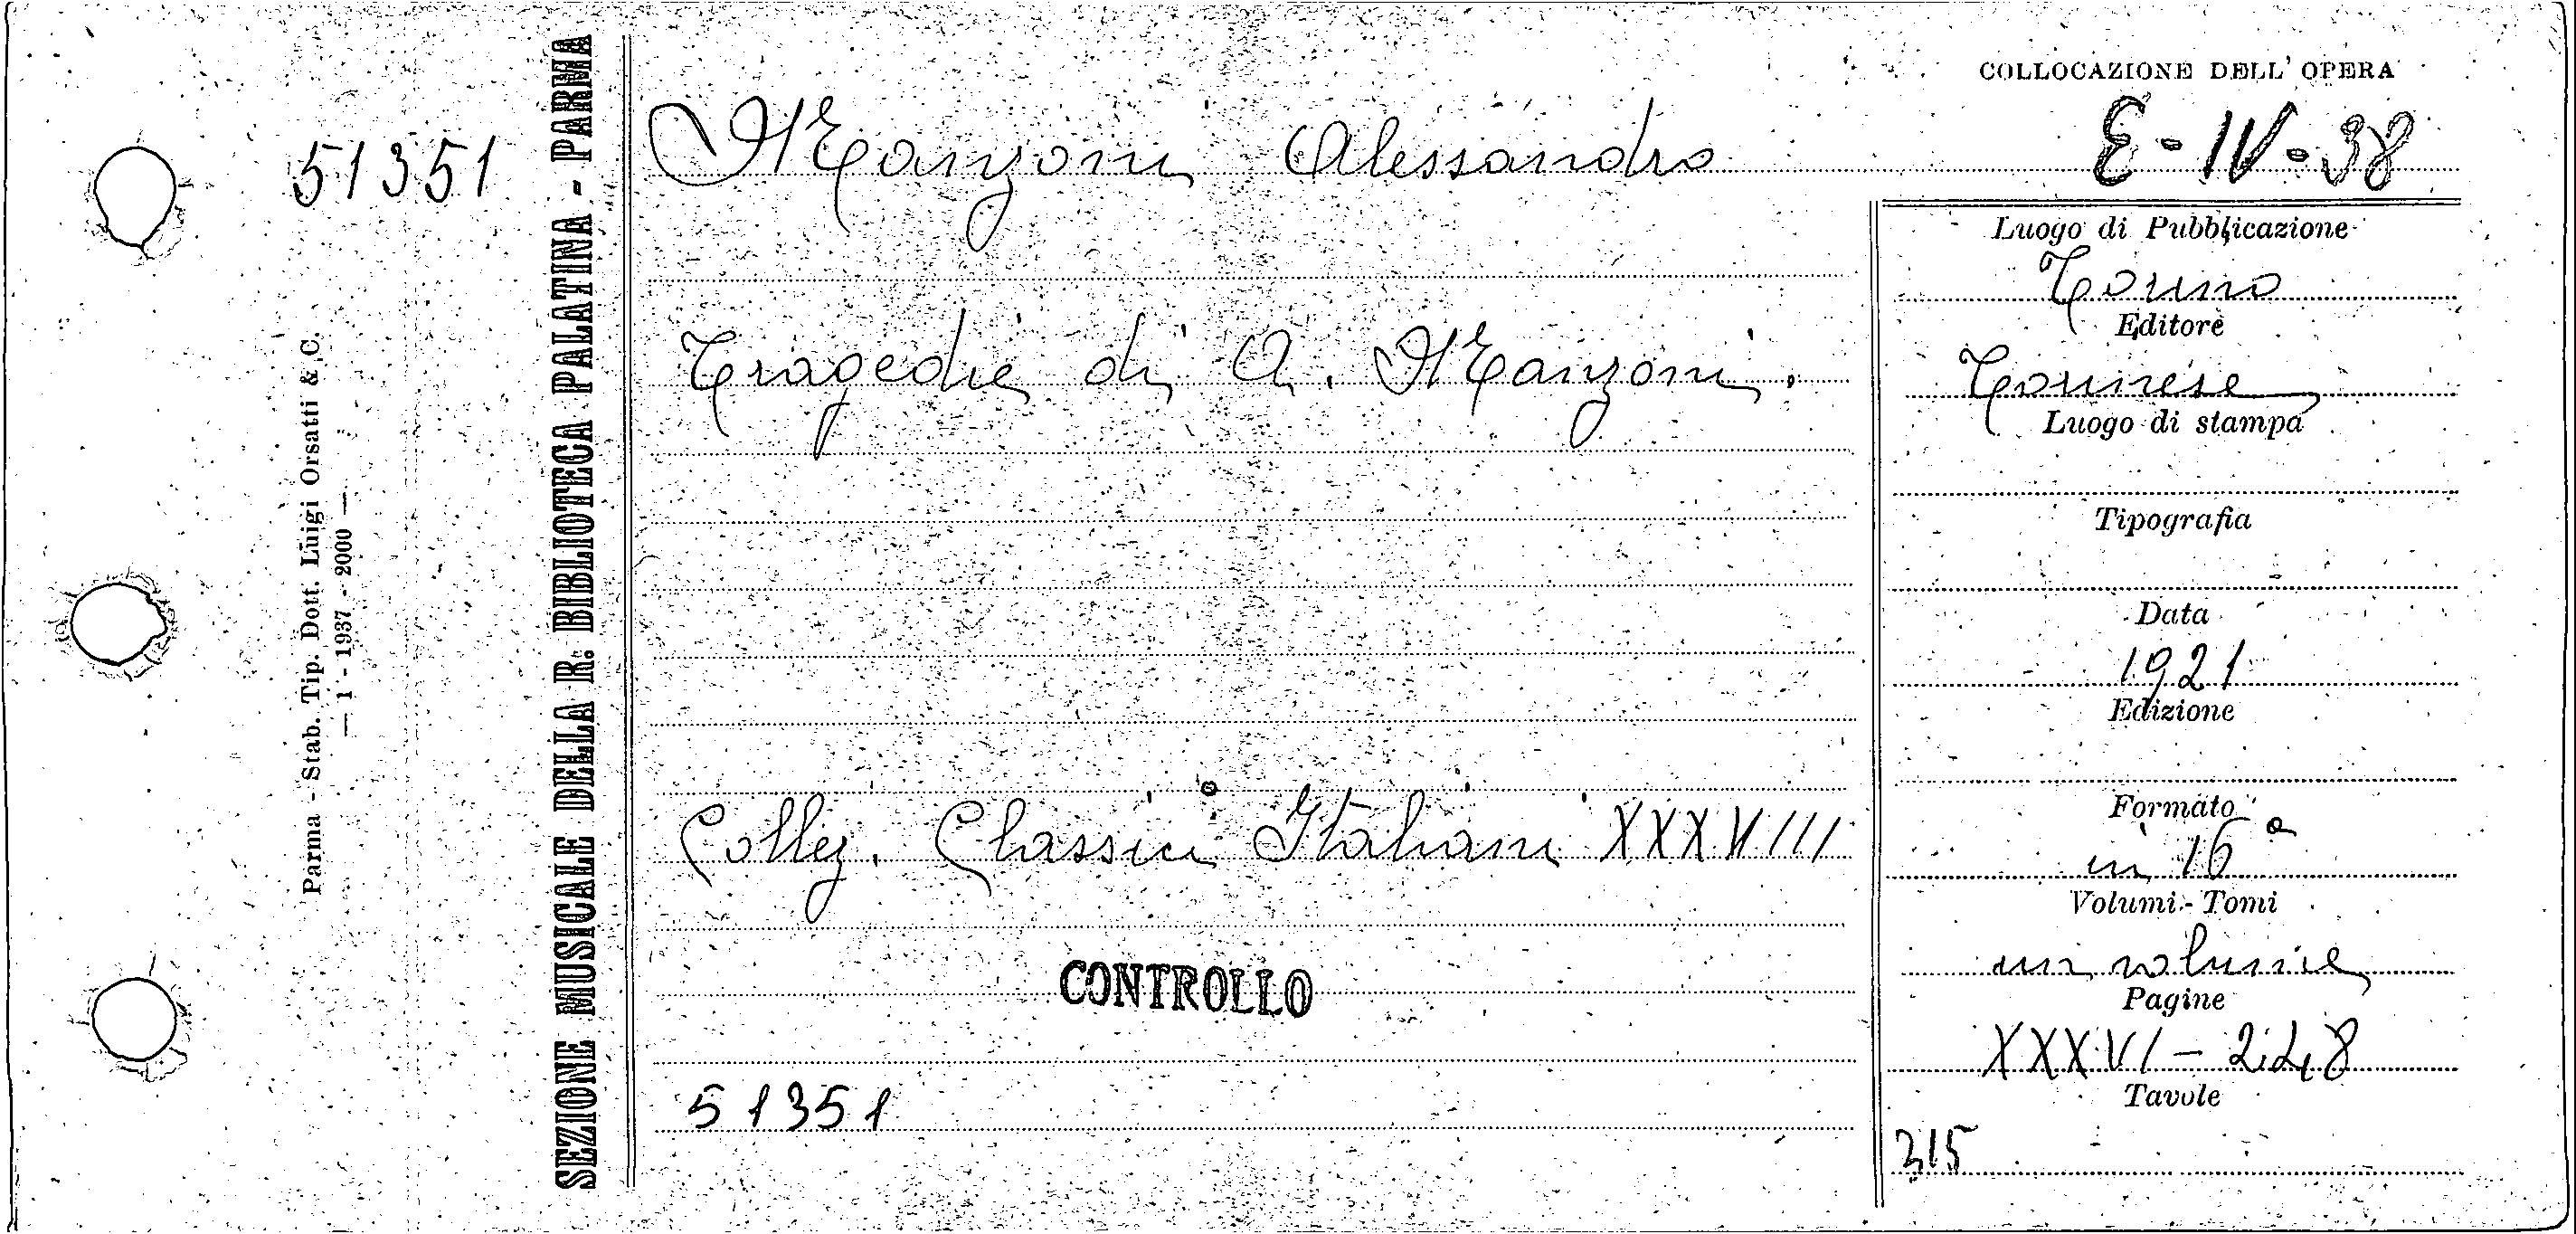 51351
Parma - Stab. Tip. Dott. Luigi Orsatti & C.
— 1 - 1937 - 2000 —
SEZIONE MUSICALE DELLA R. BIBLIOTECA PALATINA - PARMA
Manzoni Alessandro
Tragedie di A. Manzoni.
Collez. Classici Italiani XXXVIII
CONTROLLO
51351
COLLOCAZIONE DELL' OPERA
E - IV - 38
Luogo di Pubblicazione
Torino
Editore
Torinese
Luogo di stampa
Tipografia
Data
1921
Edizione
Formato
in 16°
Volumi - Tomi
un volume
Pagine
XXXVI - 248
Tavole
315